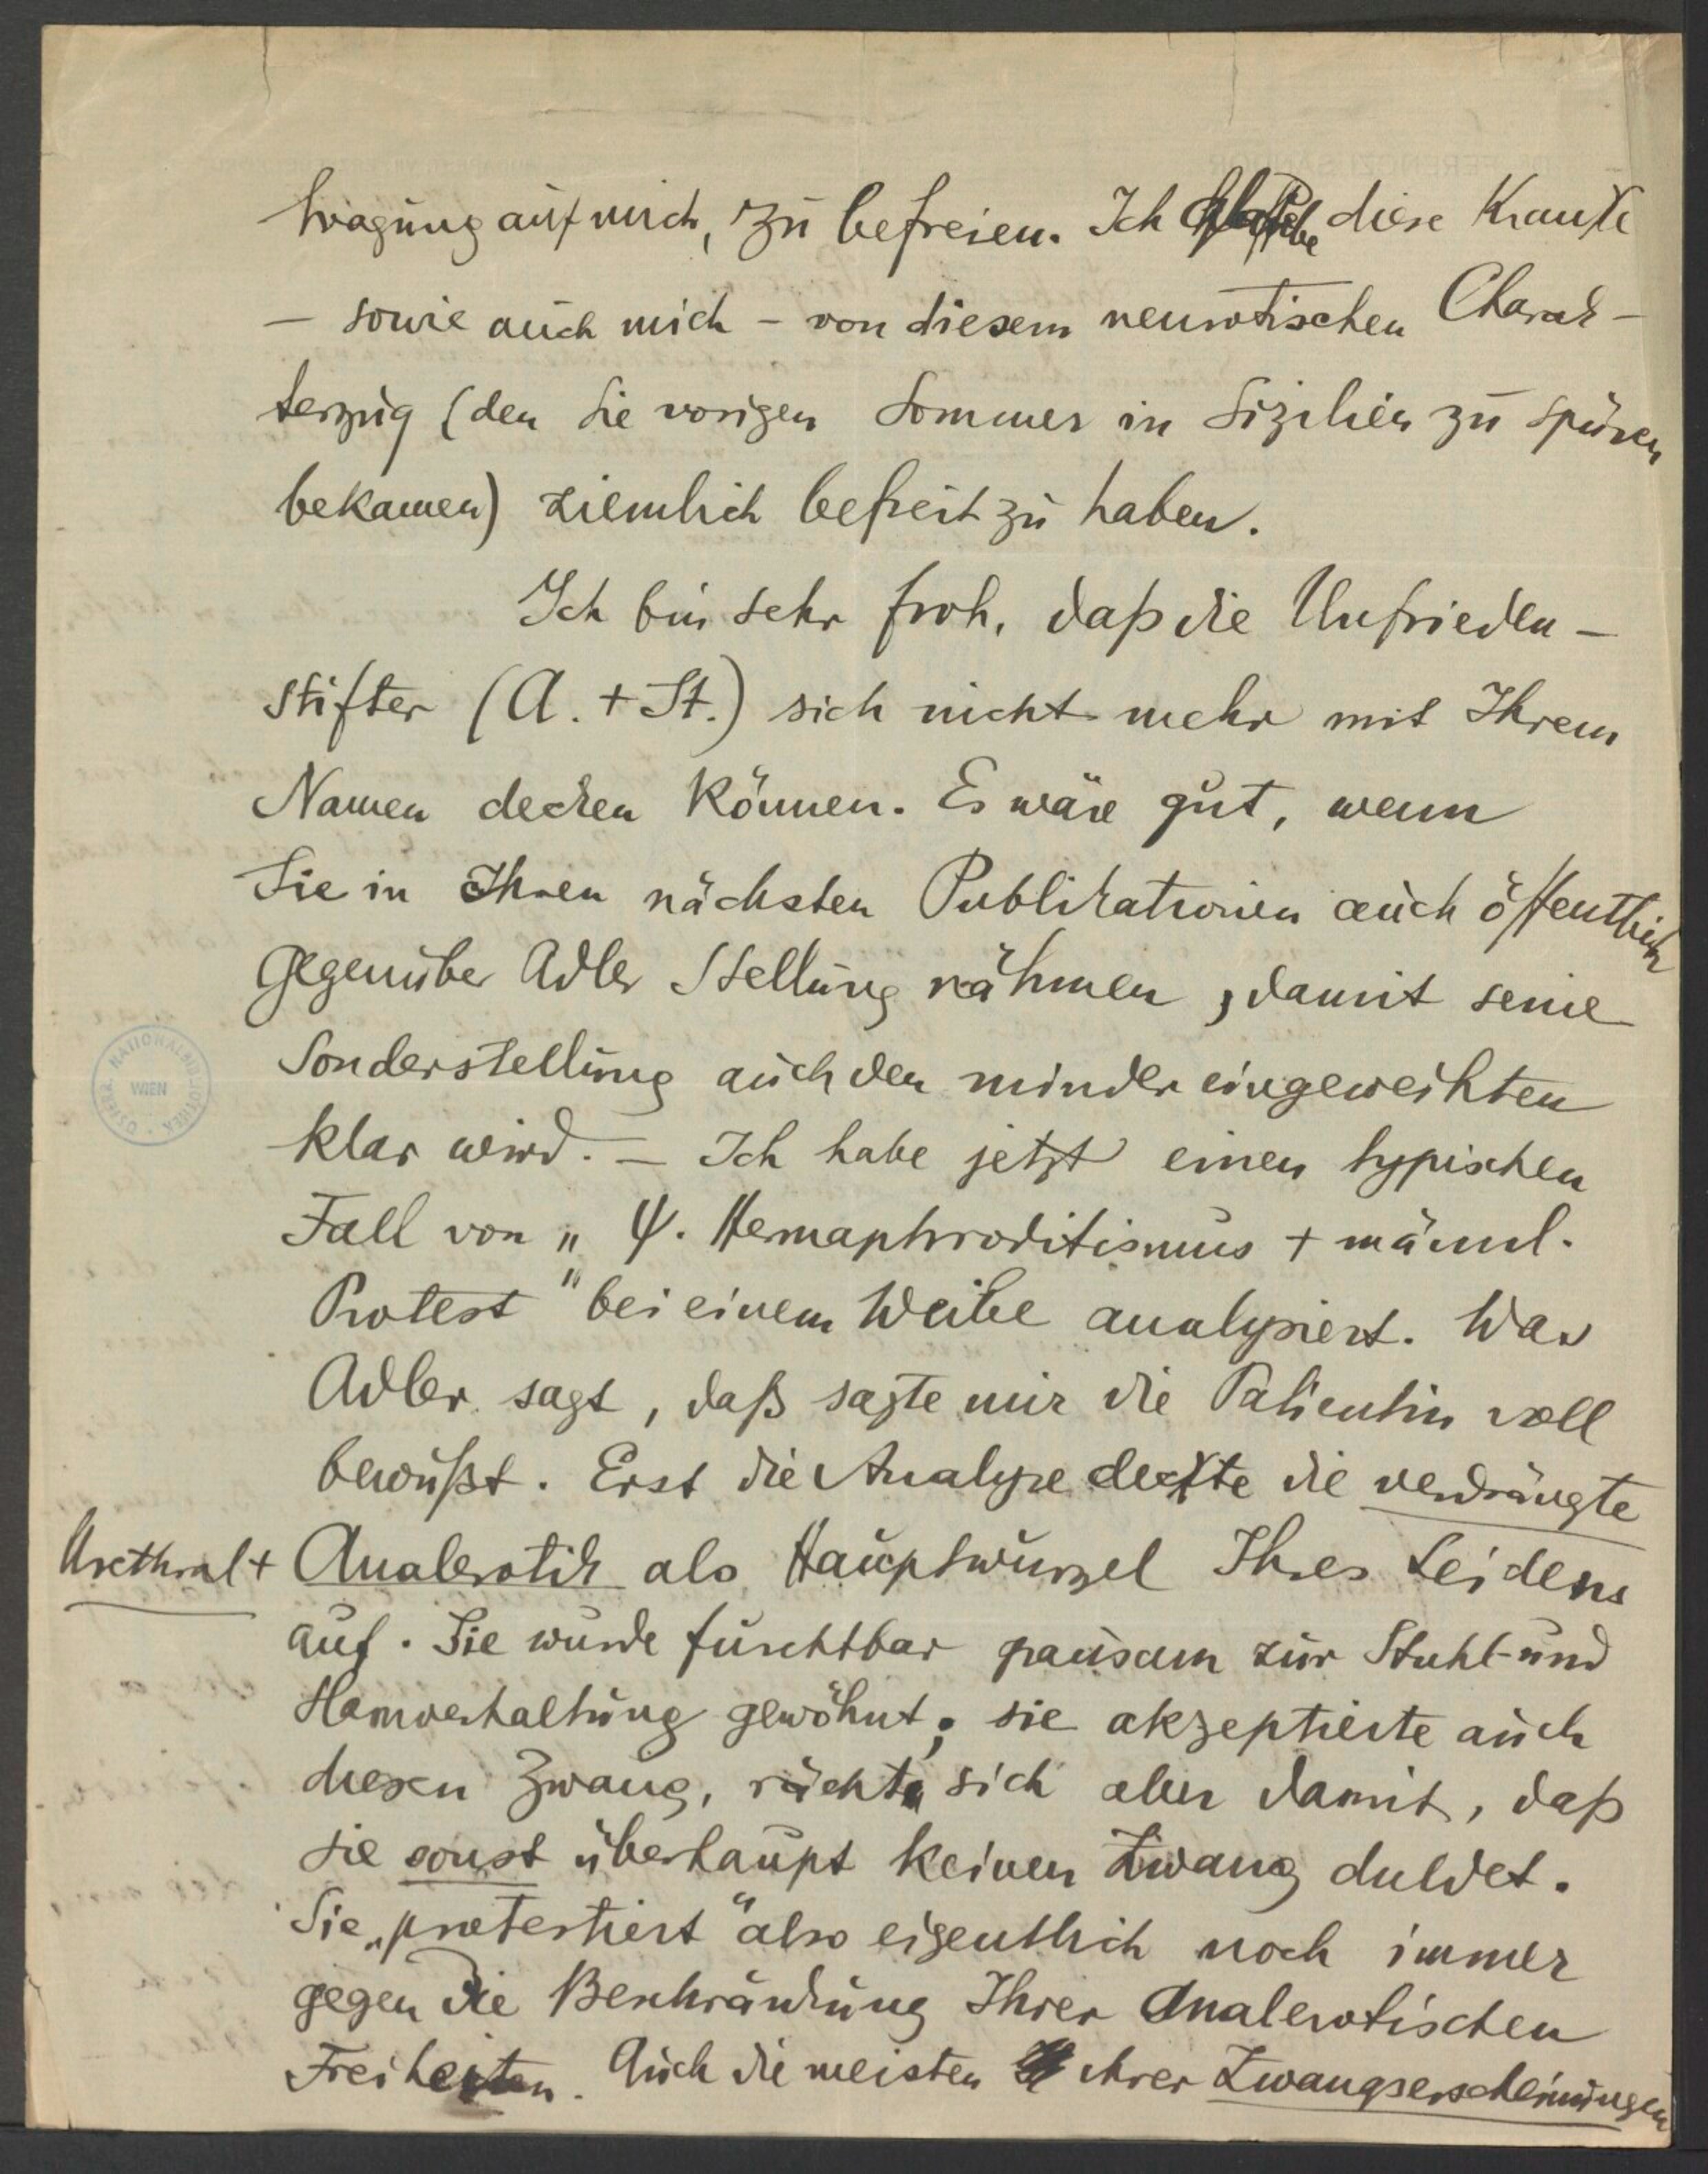 tragung auf mich, zu befreien. Ich glaube diese Kranke
– sowie auch mich – von diesem neurotischen Charak-
terzug (den Sie vorigen Sommer in Sizilien zu spüren
bekamen) ziemlich befreit zu haben.
Ich bin sehr froh, daß die Unfrieden-
stifter (A. + St.) sich nicht mehr mit Ihrem
Namen decken können. Es wäre gut, wenn
Sie in Ihren nächsten Publikationen auch öffentlich
gegenüber Adler Stellung nähmen, damit seine
Sonderstellung auch den minder eingeweihten
klar wird. – Ich habe jetzt einen typischen
Fall von „ Ψ. Hermaphroditismus + männl.
Protest“ bei einem Weibe analysiert. Was
Adler sagt, daß sagte mir die Patientin voll
bewußt. Erst die Analyse deckte die verdrängte
Urethral + Analerotik als Hauptwurzel Ihres Leidens
auf. Sie wurde furchtbar grausam zur Stuhl- und
Harnverhaltung gewöhnt; sie akzeptierte auch
diesen Zwang, rächte sich aber damit, daß
sie sonst überhaupt keinen Zwang duldet.
Sie „protestiert“ also eigentlich noch immer
gegen die Beschränkung Ihrer analerotischen
Freiheiten. Auch die meisten ihrer Zwangserscheinungen
ÖSTERR. NATIONALBIBLIOTHEK WIEN